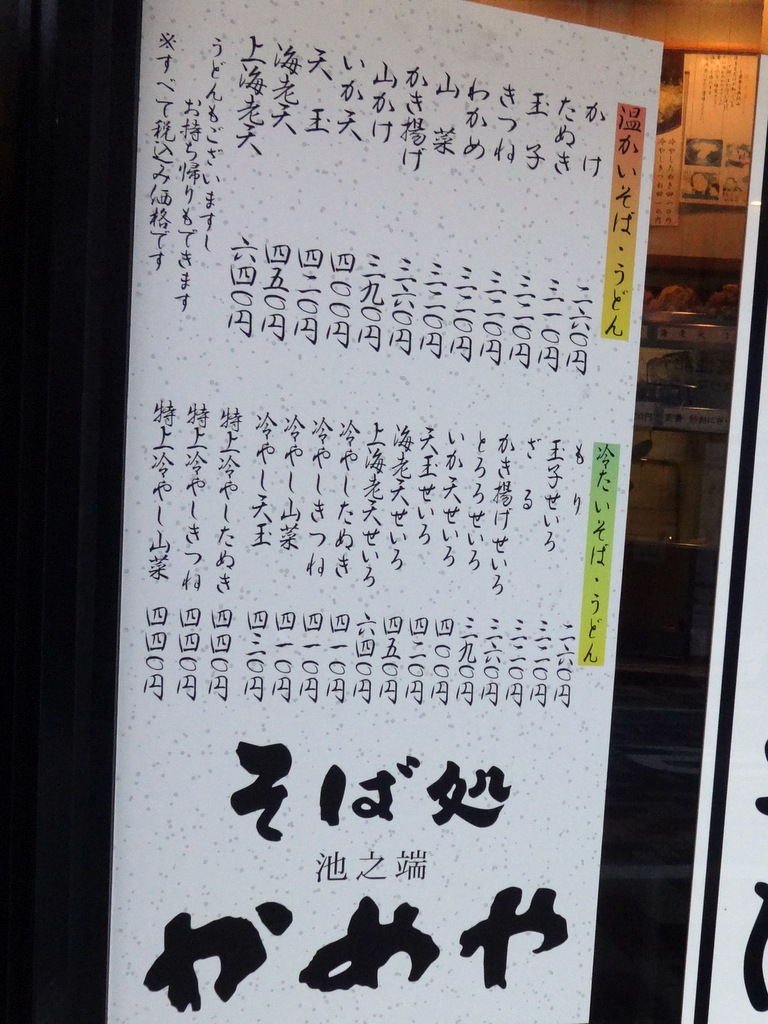 温かいそば・うどん
かけ 二六〇円
たぬき 三一〇円
玉子 三二〇円
きつね 三二〇円
わかめ 三二〇円
山菜 三二〇円
かき揚げ 三六〇円
山かけ 三九〇円
いか天 四〇〇円
天玉 四二〇円
海老天 四五〇円
上海老天 六四〇円
うどんもございますし
お持ち帰りもできます
※すべて税込み価格です
冷たいそば・うどん
もり 二六〇円
玉子せいろ 三二〇円
ざる 三二〇円
かき揚げせいろ 三六〇円
とろろせいろ 三九〇円
いか天せいろ 四〇〇円
天玉せいろ 四二〇円
海老天せいろ 四五〇円
上海老天せいろ 六四〇円
冷やしたぬき 四一〇円
冷やしきつね 四一〇円
冷やし山菜 四一〇円
冷やし天玉 四三〇円
特上冷やしたぬき 四四〇円
特上冷やしきつね 四四〇円
特上冷やし山菜 四四〇円
そば処
池之端
かめや